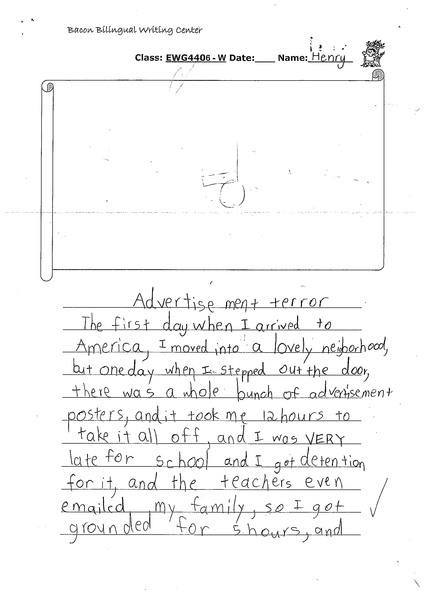 Bacon Bilingual Writing Center
Class: EWG4406 - W Date:____ Name: Henry
Advertise ment terror
The first day when I arrived to
America, I moved into a lovely neighorhood,
but one day when I stepped out the door,
there was a whole bunch of advertisement
posters, and it took me 12 hours to
take it all off, and I was VERY
late for school and I got detention
for it, and the teachers even
emailed my family, so I got
grounded for 5 hours, and